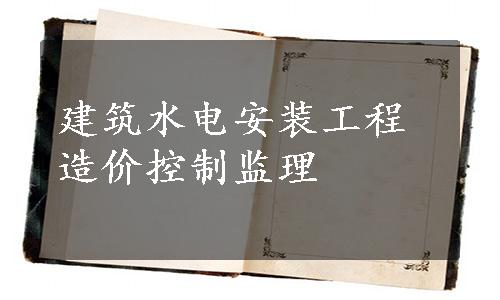 建筑水电安装工程
造价控制监理